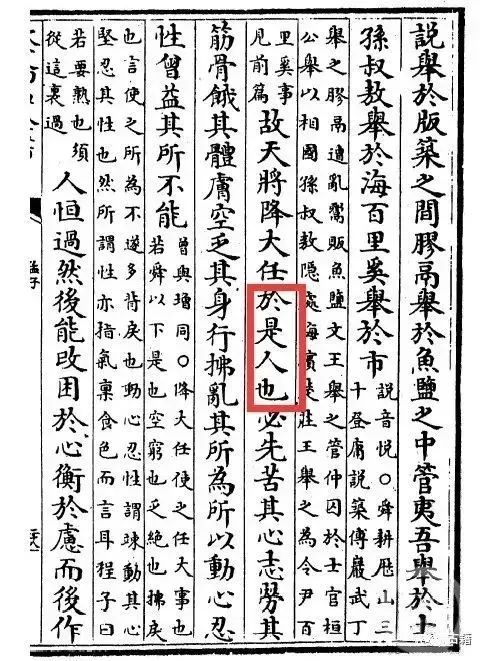 說舉於版築之間膠鬲舉於魚鹽之中管夷吾舉於士
孫叔敖舉於海百里奚舉於市
說音悅○舜耕歷山三
十登庸說築傅巖武丁
舉之膠鬲遭亂鬻販魚鹽文王舉之管仲囚於士官桓
公舉以相國孫叔敖隱處海濱楚莊王舉之為令尹百
里奚事
見前篇
故天將降大任於是人也必先苦其心志勞其
筋骨餓其體膚空乏其身行拂亂其所為所以動心忍
性曾益其所不能
曾與增同○降大任使之任大事也
若舜以下是也空窮也乏絕也拂戾
也言使之所為不遂多背戾也動心忍性謂竦動其心
堅忍其性也然所謂性亦指氣稟食色而言耳程子曰
若要熟也須
從這裏過
人恒過然後能改困於心衡於慮而後作
孟子